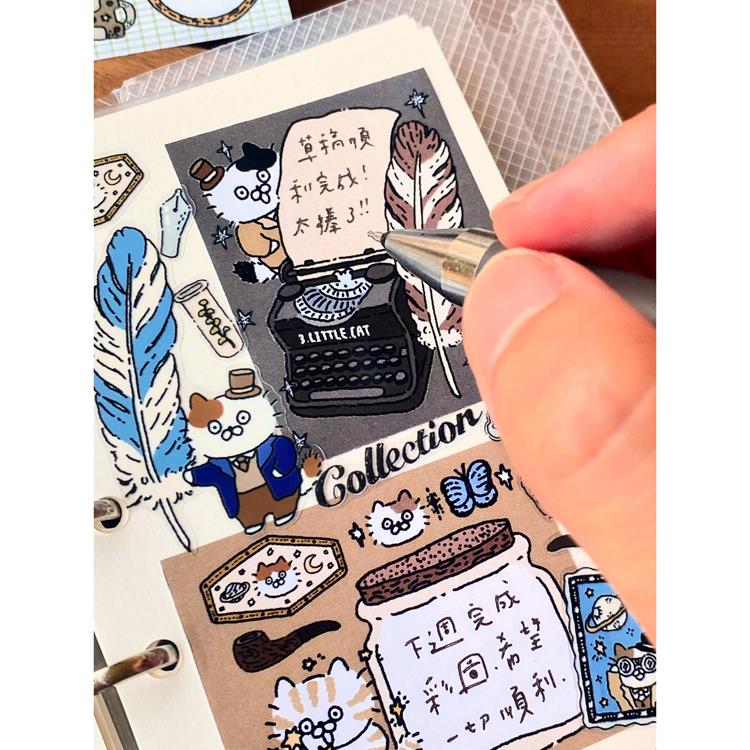 草稿順
利完成!
太棒了!!
3.LITTLE.CAT
Collection
下週完成
彩圖.希望
一切順利.